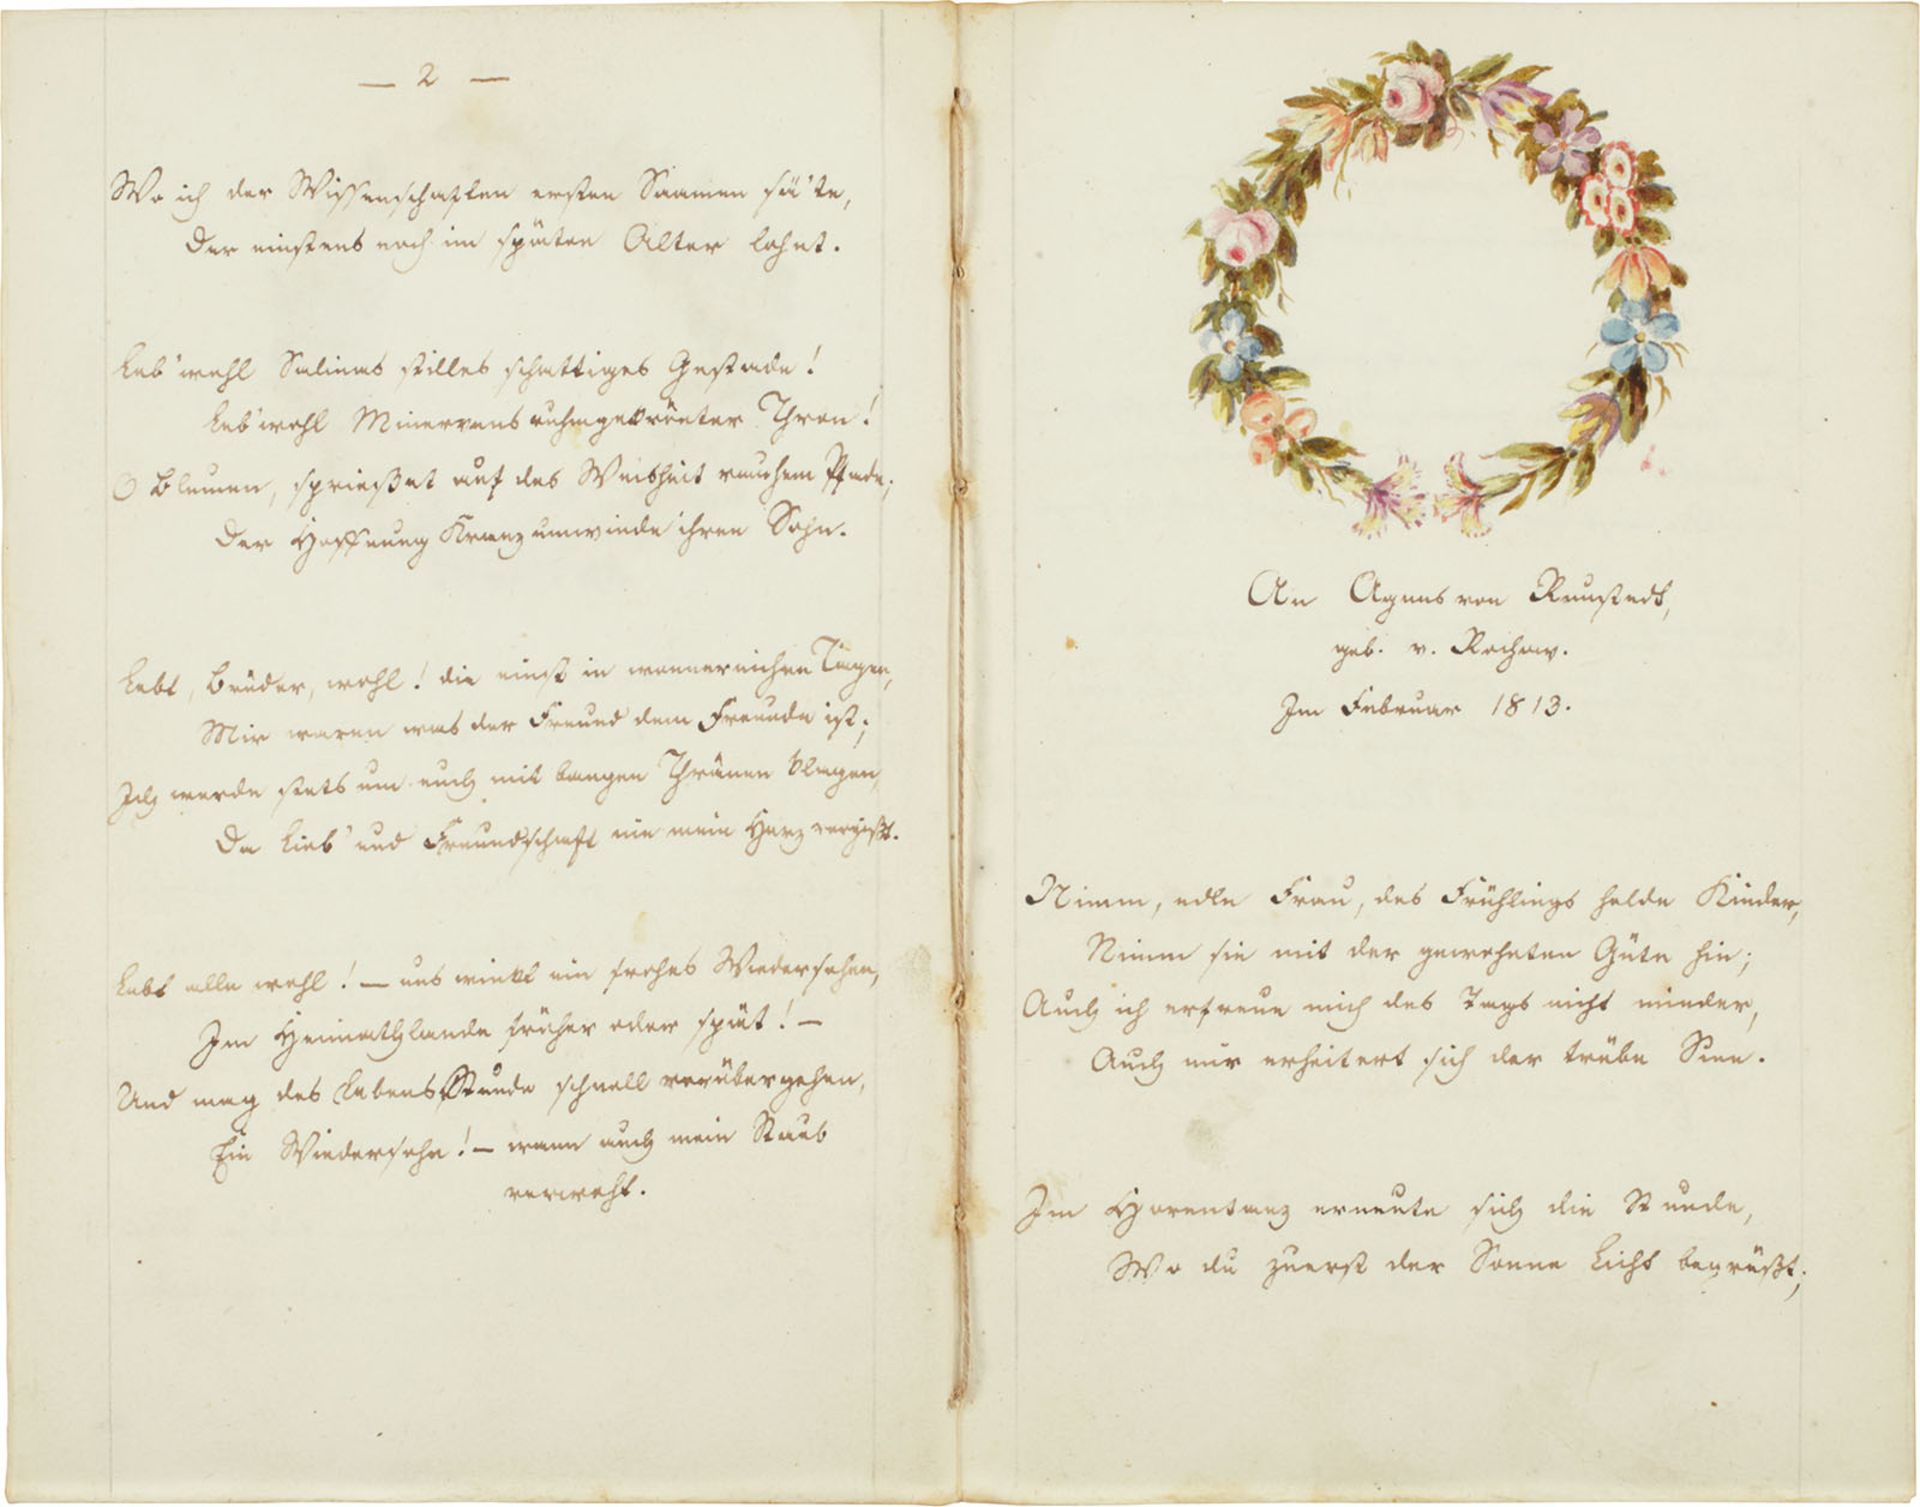 — 2 —
Wo ich der Wissenschaften ersten Saamen sä'te,
Der einstens noch im späten Alter lohnt.
Leb' wohl Salinas stilles schattiges Gestade!
Leb' wohl Minervens ruhmgekrönter Thron!
O Blumen, sprießet auf des Weisheit rauhem Pfade;
Der Hoffnung Kranz umwinde ihren Sohn.
Lebt, Brüder, wohl! die einst in wonnereichen Tagen,
Mir waren was der Freund dem Freunde ist;
Ich werde stets um euch mit bangen Thränen klagen,
Da Lieb' und Freundschaft nie mein Herz vergißt.
Lebt alle wohl! — uns winkt ein frohes Wiedersehen,
Im Heimathlande früher oder spät! —
Und mag des Lebens Stunde schnell vorübergehen,
Ein Wiedersehn! — wann auch mein Staub
verweht.
An Agnes von Reustedt,
geb. v. Rochow.
Im Februar 1813.
Nimm, edle Frau, des Frühlings holde Kinder,
Nimm sie mit der gewohnten Güte hin;
Auch ich erfreue mich des Tags nicht minder,
Auch mir erheitert sich der trübe Sinn.
Im Horentanz erneute sich die Stunde,
Wo du zuerst der Sonne Licht begrüßt;